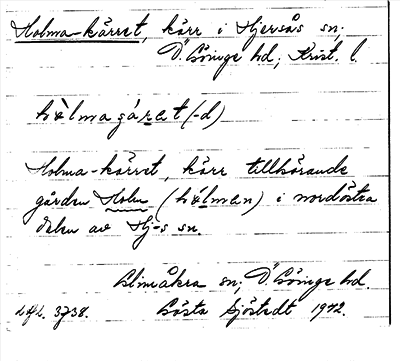 Holma-kärret, kärr i Hjersås sn,
Ö. Göinge hd, Krist. l.
hòlmagáret (-d)
Holma-kärret, kärr tillhörande
gården Holm (hólman) i nordöstra
delen av Hj-s sn.
Glimåkra sn, Ö. Göinge hd.
3738. Gösta Sjöstedt 1942.